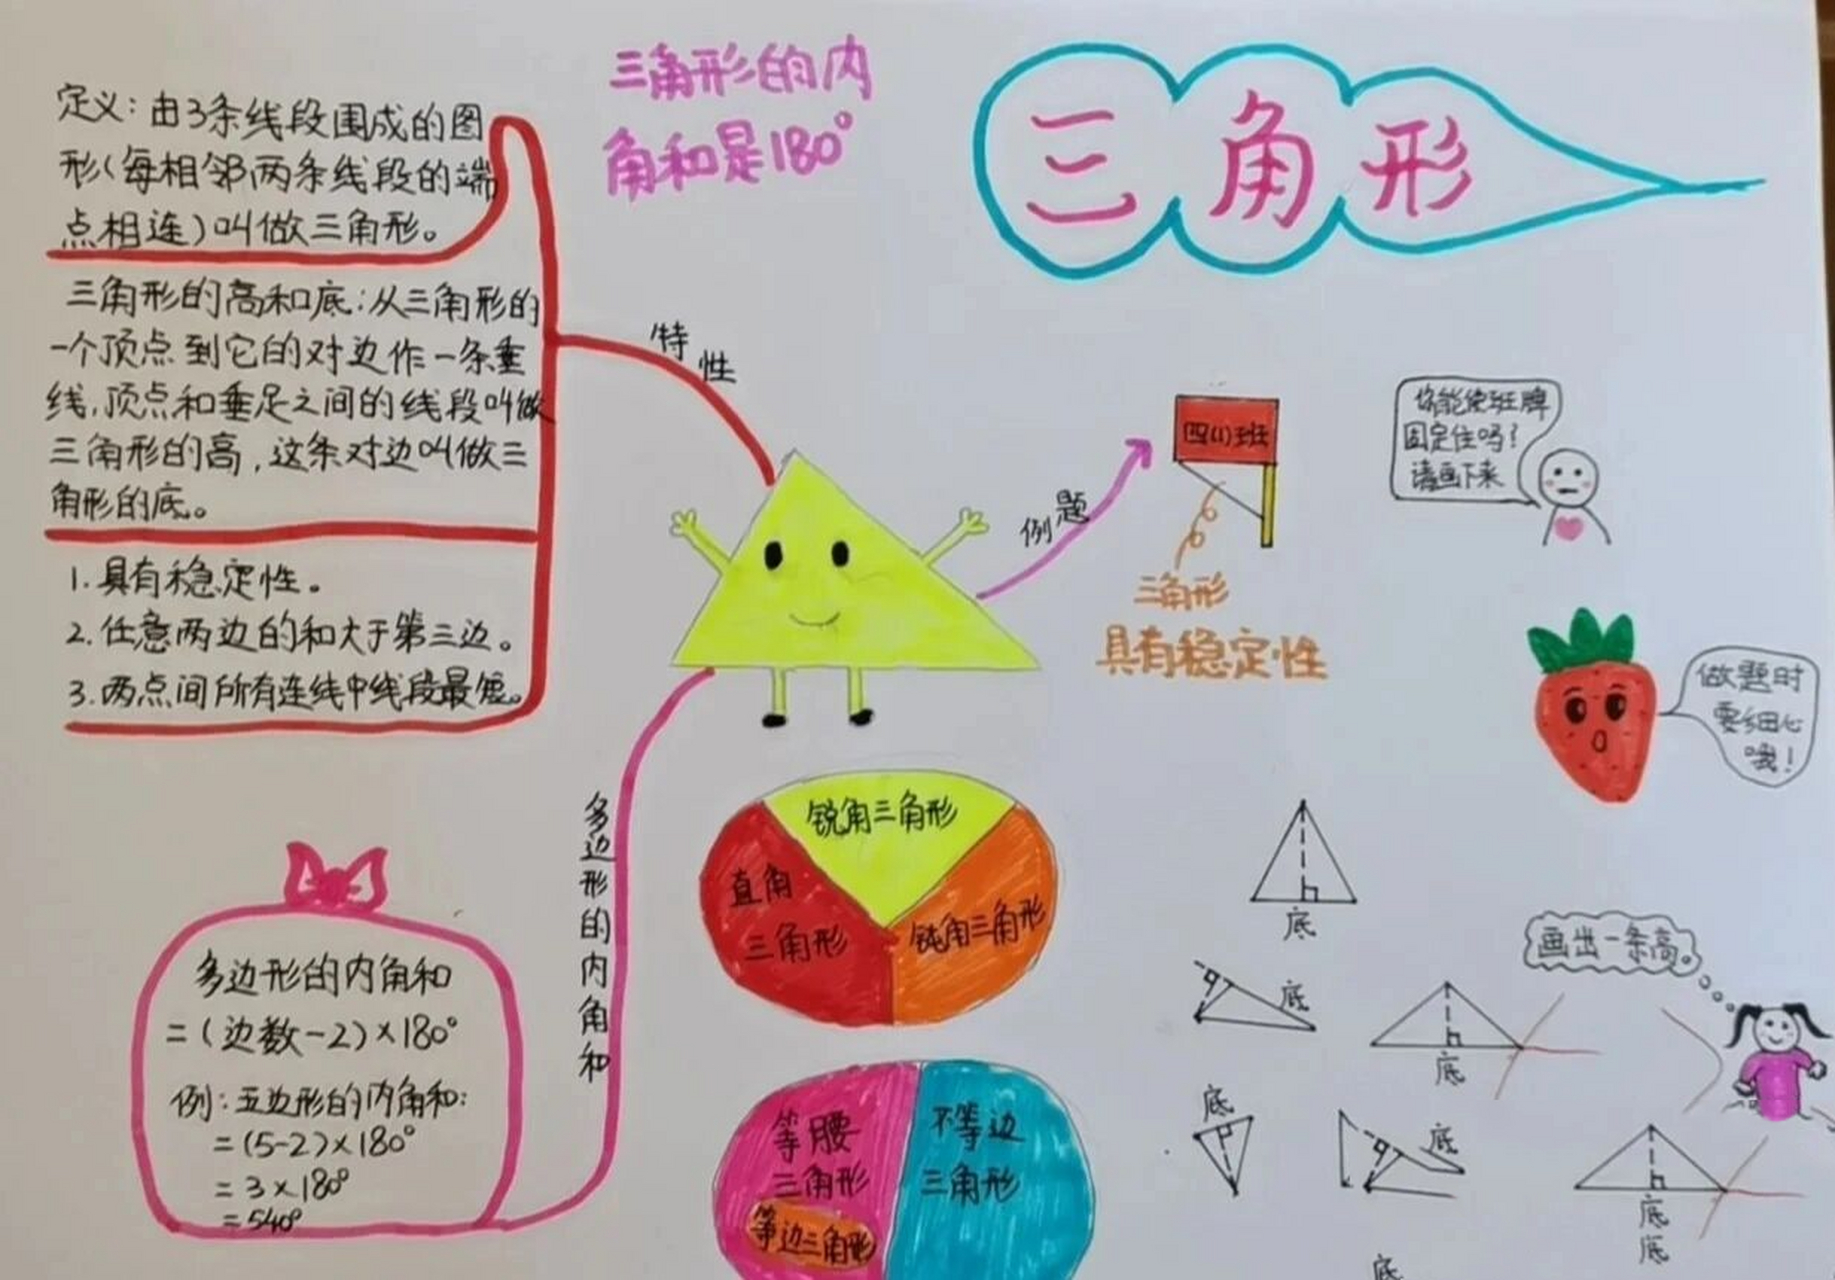 三角形的内
角和是180°
三角形
定义:由3条线段围成的图
形(每相邻两条线段的端
点相连)叫做三角形。
三角形的高和底:从三角形的
一个顶点到它的对边作一条垂
线,顶点和垂足之间的线段叫做
三角形的高,这条对边叫做三
角形的底。
1.具有稳定性。
2.任意两边的和大于第三边。
3.两点间所有连线中线段最短。
特性
例题
四(1)班
三角形
具有稳定性
你能使班牌
固定住吗?
请画下来
做题时
要细心
哦!
多边形的内角和
多边形的内角和
=(边数-2)×180°
例:五边形的内角和:
=(5-2)×180°
=3×180°
=540°
锐角三角形
直角
三角形
钝角三角形
等腰
三角形
等边三角形
不等边
三角形
画出一条高。
底
底
底
底
底
底
底
底